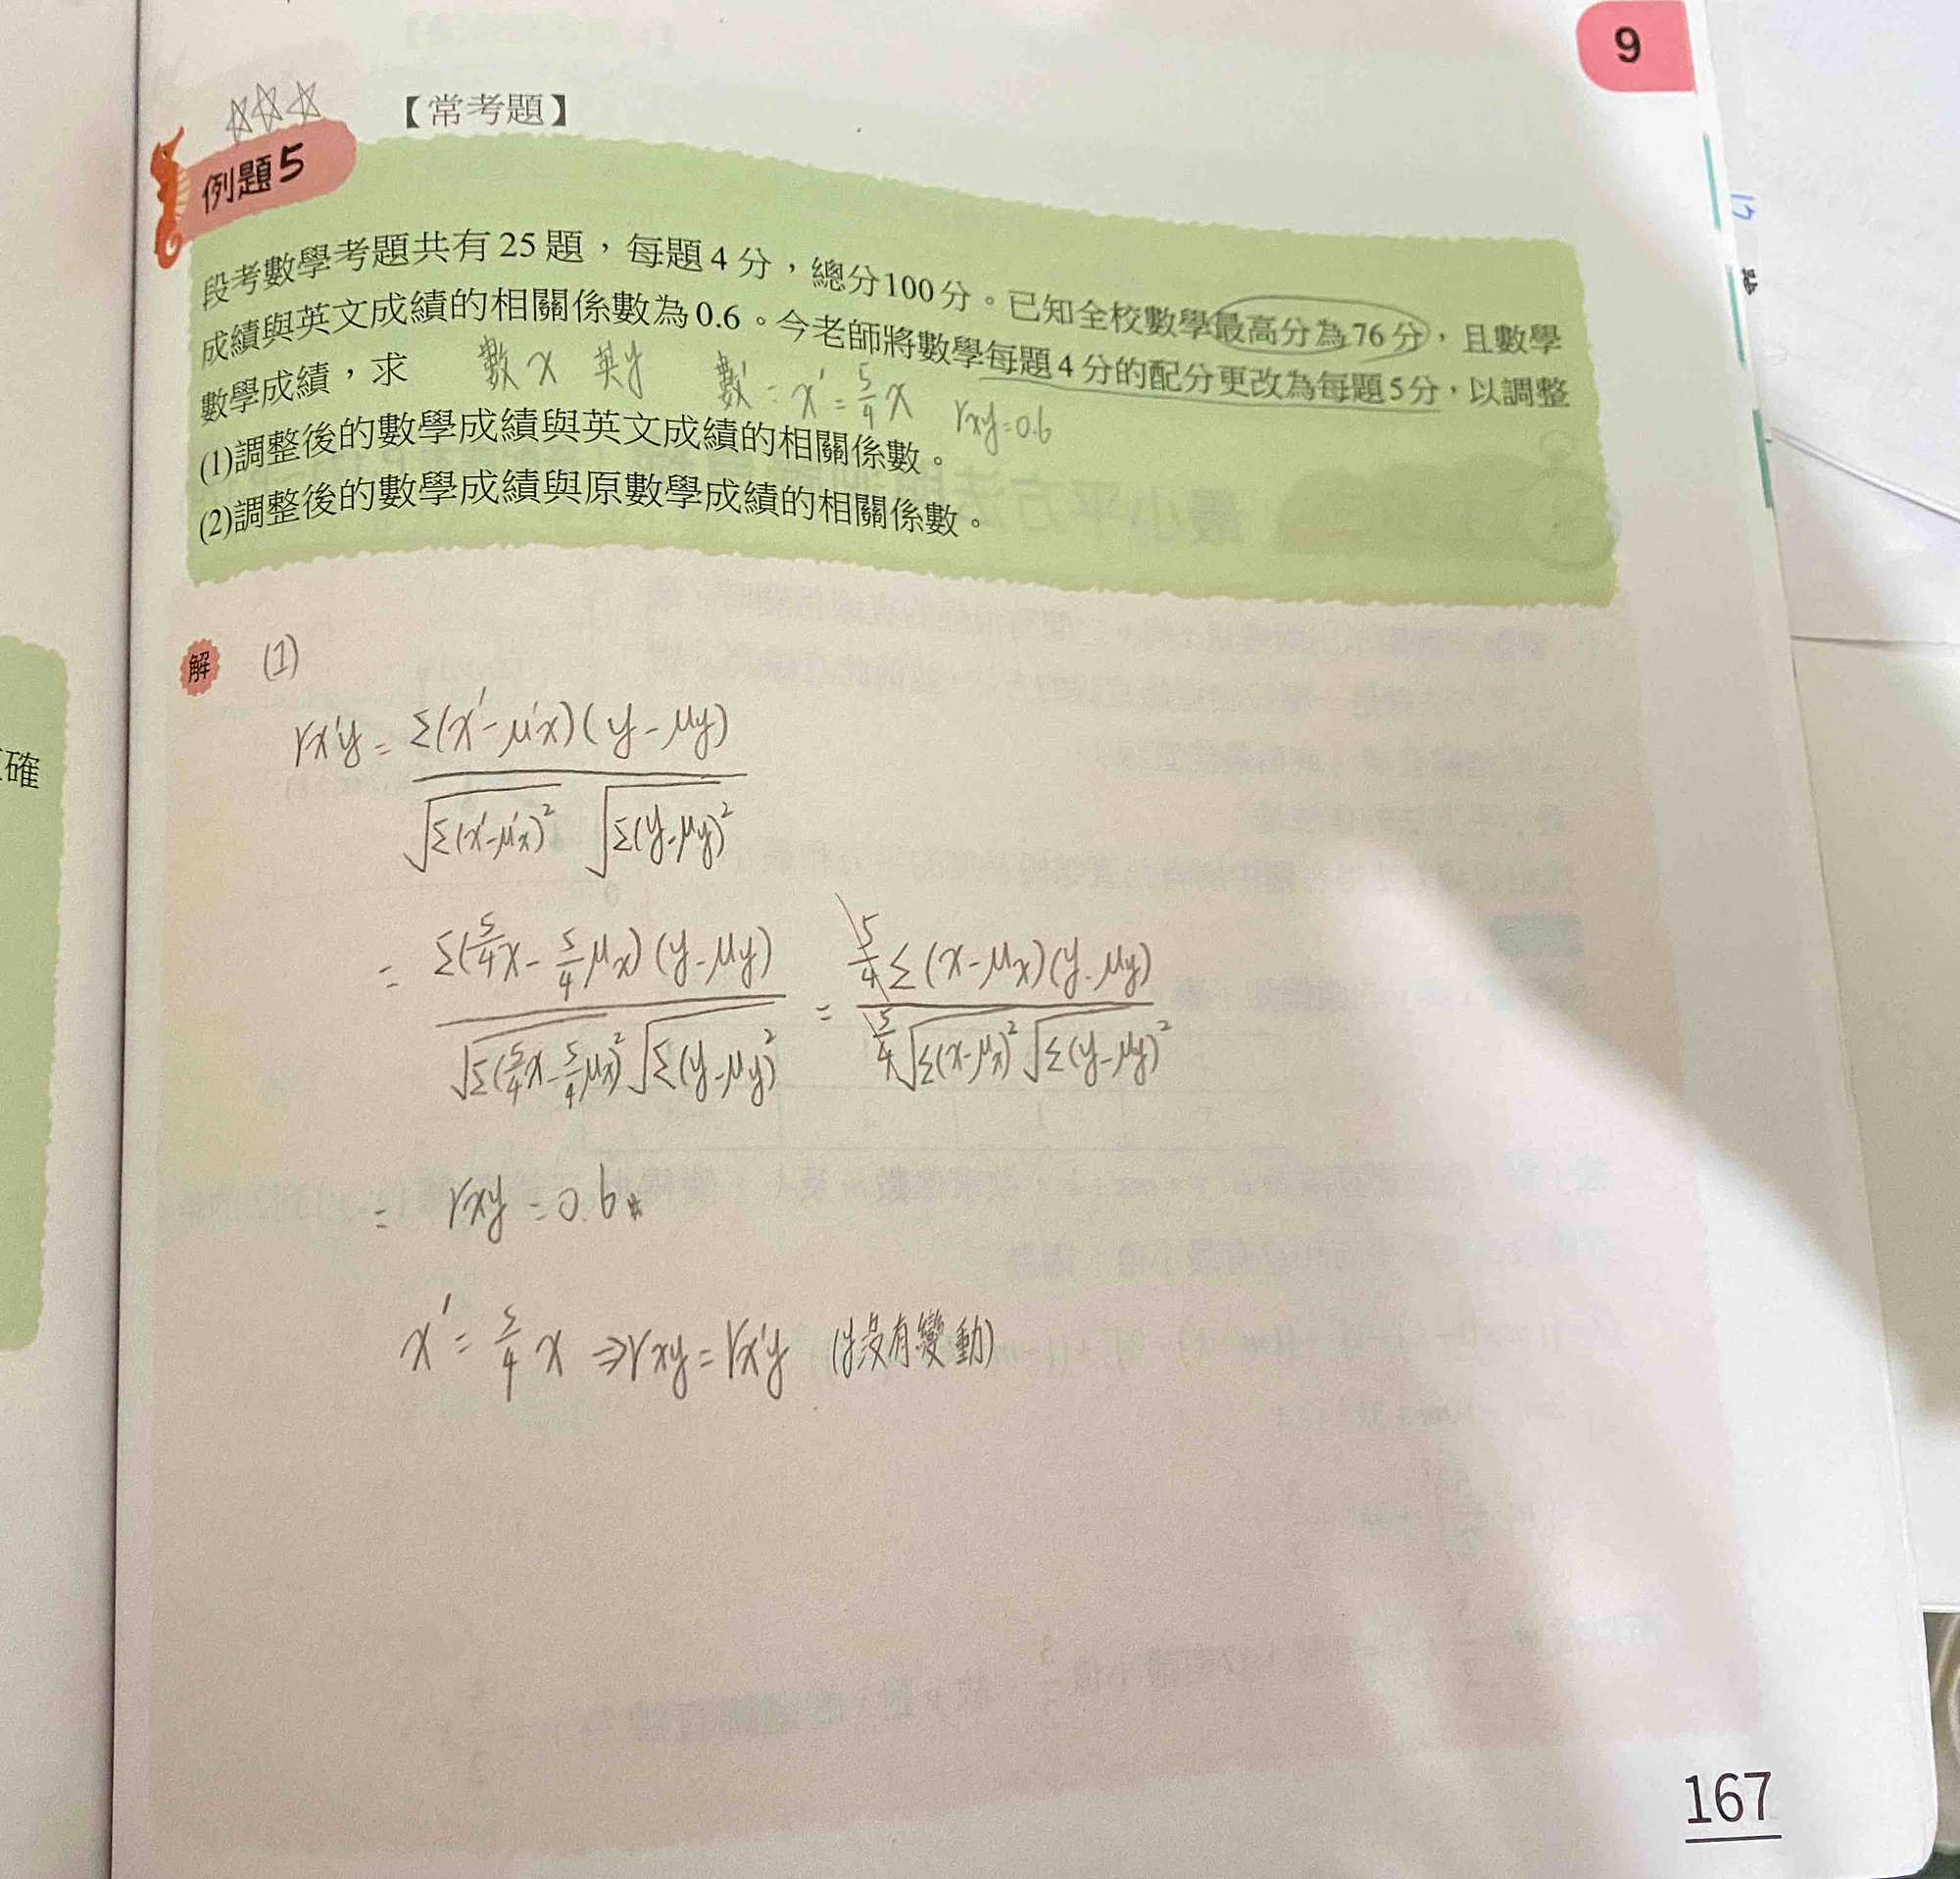 9
【常考題】
例題5
段考數學考題共有25題，每題4分，總分100分。已知全校數學最高分為76分，且數學
成績與英文成績的相關係數為0.6。今老師將數學每題4分的配分更改為每題5分，以調整
數學成績，求
數x 英y 數' = x' = 5/4 x rxy=0.6
(1)調整後的數學成績與英文成績的相關係數。
(2)調整後的數學成績與原數學成績的相關係數。
解 (1)
rx'y = Σ(x'-μ'x)(y-μy) / √Σ(x'-μ'x)² √Σ(y-μy)²
= Σ(5/4x - 5/4μx)(y-μy) / √Σ(5/4x-5/4μx)² √Σ(y-μy)² = 5/4 Σ(x-μx)(y-μy) / 5/4 √Σ(x-μx)² √Σ(y-μy)²
= rxy = 0.6
x' = 5/4 x ⇒ rxy = rx'y (y沒有變動)
確
167